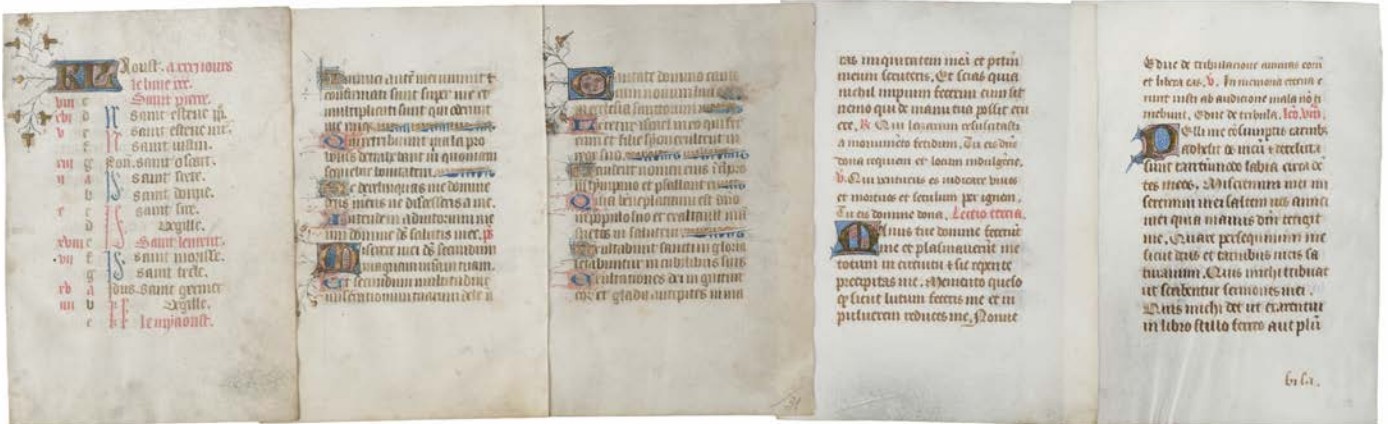 KL Aoust. a xxxj iours
le lune xxx.
viii c Saint pierre.
xvi d N saint estene pp.
v e saint estene me.
f N saint iustin.
xiii g Non. saint osoart.
ii a saint sixte.
b saint donne.
x c saint sire.
d Vigille.
xviii e Saint leurent.
vii f saint morisse.
g saint
xv a Idus. saint
iiii b Vigille.
c kl le myaoust.
Inimici autem mei vivunt et
confirmati sunt super me et
multiplicati sunt qui oderunt
me
Qui retribuunt mala pro
bonis detrahebant michi quoniam
sequebar bonitatem.
Ne derelinquas me domine
deus meus ne discesseris a me.
Intende in adiutorium me
um domine deus salutis mee. ps
Miserere mei deus secundum
magnam misam tuam.
Et secundum multitudine
miserationum tuarum dele in
Cantate domino canti
cum novum laus
ecclesia sanctorum
Letetur israel in eo qui fec
eum et filie syon exultent in
rege suo.
Laudent nomen eius in choro
in tympano et psallant
Quia beneplacitum est dno
in populo suo et exaltavit man
suetos in salutem
Exultabunt sancti in gloria
letabuntur in cubilibus suis
Exultationes dei in gutture
eor et gladii ancipites in ma
ras iniquitatem meam et peccatum
meum scruteris. Et scias quia
nichil impium fecerim cum sit
nemo qui de manu tua possit eru
ere. R. Qui lazarum resuscitasti
a monumento fetidum. Tu eis dne
dona requiem et locum indulgencie.
V. Qui venturus es iudicare vivos
et mortuos et seculum per ignem.
Tu eis domine dona. Lectio tercia.
Manus tue domine fecerunt
me et plasmaverunt me
totum in circuitu et sic repente
precipitas me. Memento queso
qd sicut lutum feceris me et in
pulverem reduces me. Nonne
Educ de tribulacione animas eorum
et libera eas. V. In memoria eterna e
runt iusti ab audicione mala non ti
mebunt. Educ de tribula. leo. viii.
Pelli mee consumptis carnib
adhesit os meum et derelicta
sunt tantummodo labia circa den
tes meos. Miseremini mei mi
seremini mei saltem vos amici
mei quia manus dni tetigit
me. Quare persequimini me
sicut deus et carnibus meis sa
turamini. Quis michi tribuat
ut scribentur sermones mei.
Quis michi det ut exarentur
in libro stillo ferreo aut plum